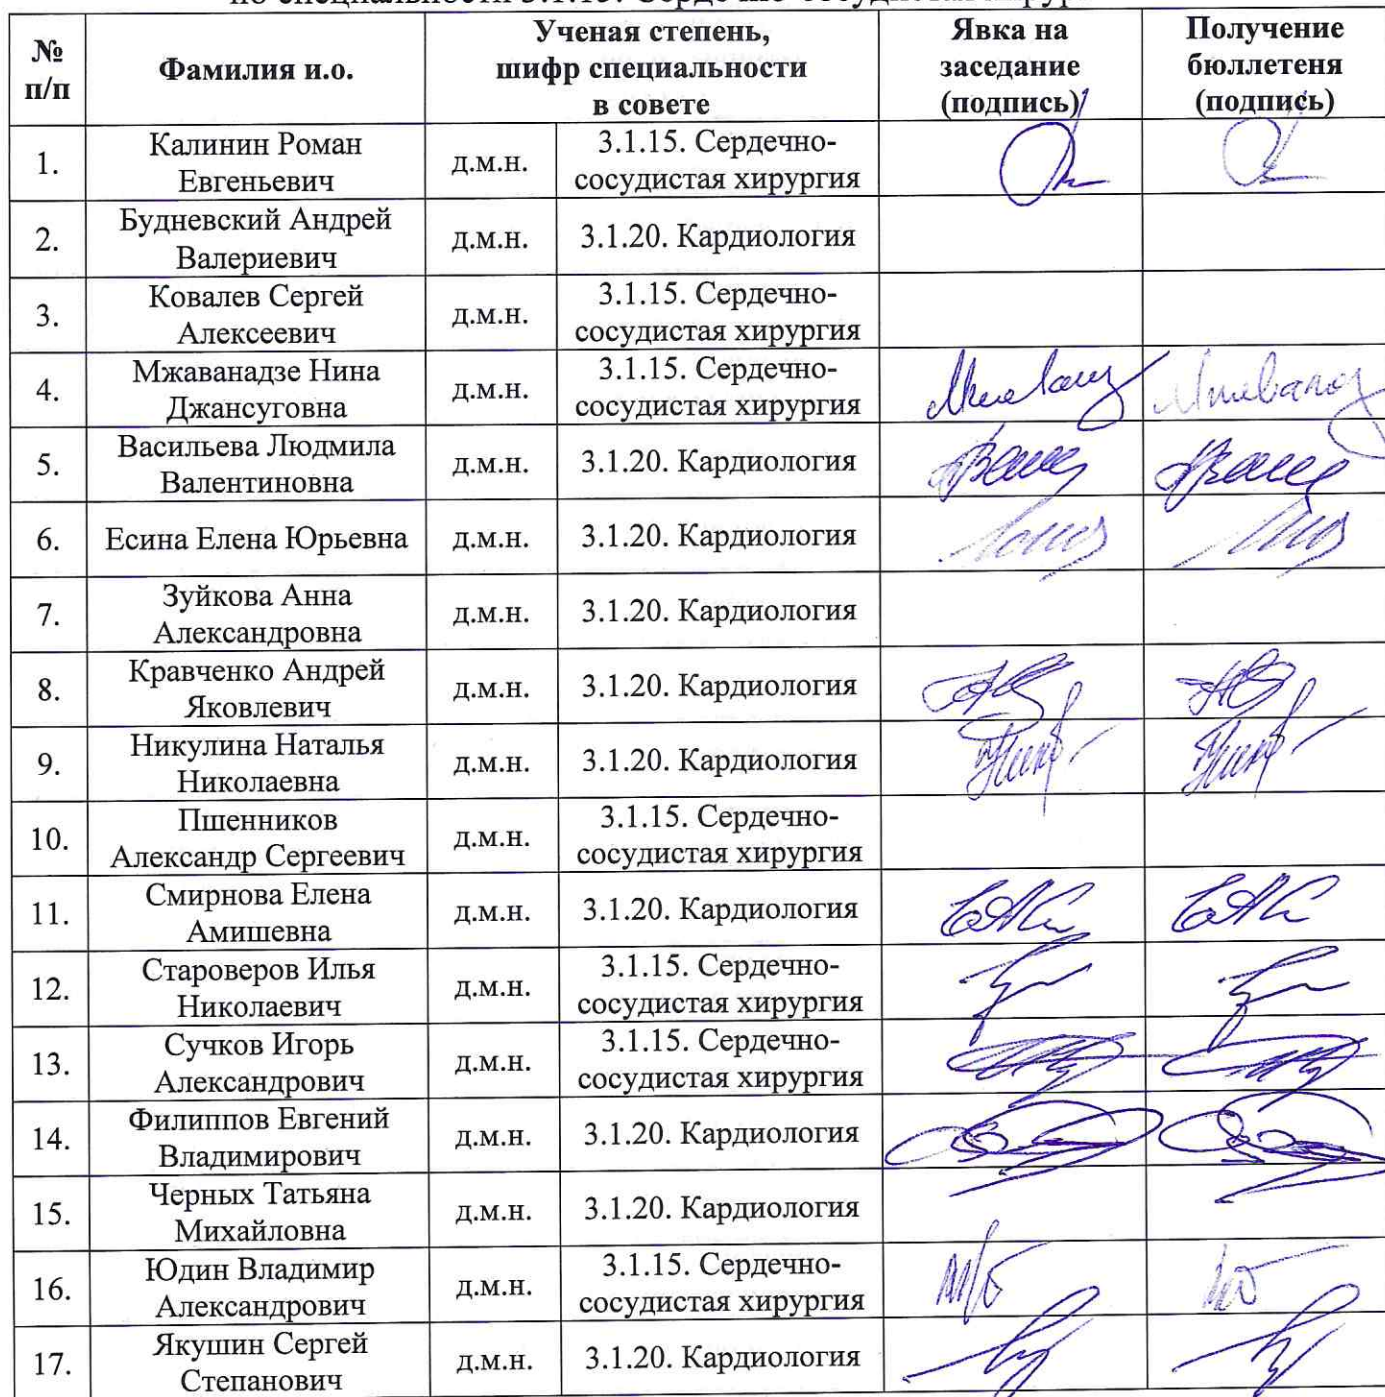 по специальности 3.1.15. Сердечно-сосудистая хирургия
№
п/п
Фамилия и.о.
Ученая степень,
шифр специальности
в совете
Явка на
заседание
(подпись)
Получение
бюллетеня
(подпись)
1.
Калинин Роман
Евгеньевич
д.м.н.
3.1.15. Сердечно-
сосудистая хирургия
2.
Будневский Андрей
Валериевич
д.м.н.
3.1.20. Кардиология
3.
Ковалев Сергей
Алексеевич
д.м.н.
3.1.15. Сердечно-
сосудистая хирургия
4.
Мжаванадзе Нина
Джансуговна
д.м.н.
3.1.15. Сердечно-
сосудистая хирургия
5.
Васильева Людмила
Валентиновна
д.м.н.
3.1.20. Кардиология
6.
Есина Елена Юрьевна
д.м.н.
3.1.20. Кардиология
7.
Зуйкова Анна
Александровна
д.м.н.
3.1.20. Кардиология
8.
Кравченко Андрей
Яковлевич
д.м.н.
3.1.20. Кардиология
9.
Никулина Наталья
Николаевна
д.м.н.
3.1.20. Кардиология
10.
Пшенников
Александр Сергеевич
д.м.н.
3.1.15. Сердечно-
сосудистая хирургия
11.
Смирнова Елена
Амишевна
д.м.н.
3.1.20. Кардиология
12.
Староверов Илья
Николаевич
д.м.н.
3.1.15. Сердечно-
сосудистая хирургия
13.
Сучков Игорь
Александрович
д.м.н.
3.1.15. Сердечно-
сосудистая хирургия
14.
Филиппов Евгений
Владимирович
д.м.н.
3.1.20. Кардиология
15.
Черных Татьяна
Михайловна
д.м.н.
3.1.20. Кардиология
16.
Юдин Владимир
Александрович
д.м.н.
3.1.15. Сердечно-
сосудистая хирургия
17.
Якушин Сергей
Степанович
д.м.н.
3.1.20. Кардиология